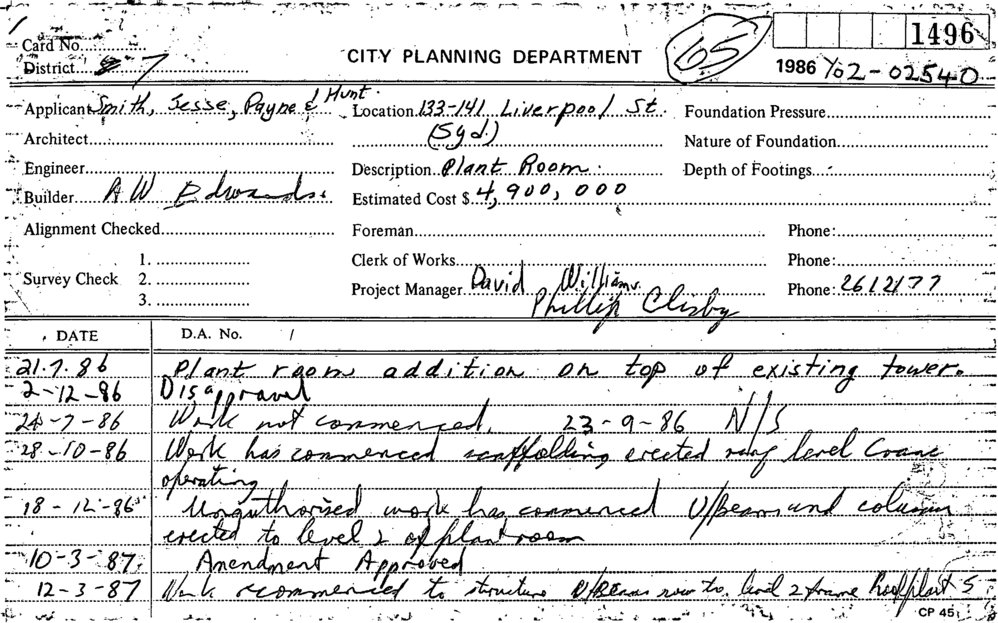 Card No.
District 7
CITY PLANNING DEPARTMENT
65
1496
1986 Y02-02540
Applicant Smith, Jesse, Payne & Hunt.
Location 133-141 Liverpool St.
(Syd.)
Foundation Pressure
Architect
Nature of Foundation
Engineer
Description Plant Room.
Depth of Footings
Builder AW Edwards.
Estimated Cost $ 4,900,000
Alignment Checked
Foreman
Phone:
Survey Check 1.
2.
3.
Clerk of Works
Phone:
Project Manager David Williams.
Phillip Clisby
Phone: 2612177
DATE D.A. No. /
21.7.86 Plant room addition on top of existing tower.
2-12-86 Disapproval
24-7-86 Work not commenced. 23-9-86 N/S
28-10-86 Work has commenced scaffolding erected roof level Crane
operating
18-12-86 Unauthorised work has commenced U/Beams and column
erected to level 2 of plant room
10-3-87. Amendment Approved
12-3-87 Work recommenced to structure U/Beams now to level 2 frame
CP 45